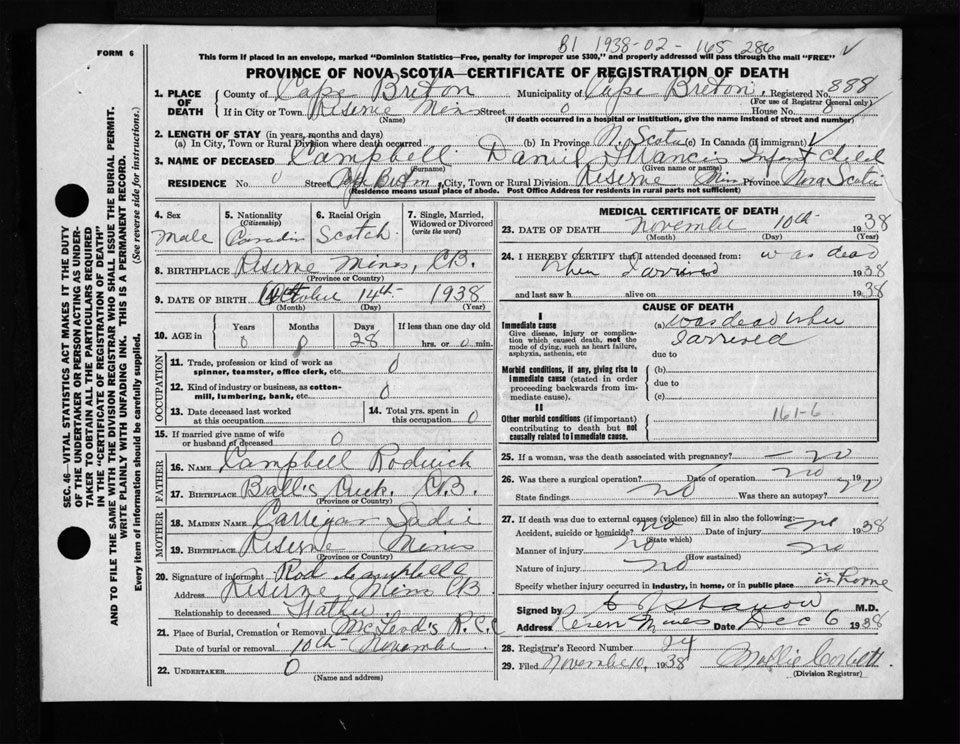 FORM 6
B1 1938-02-165 286
This form if placed in an envelope, marked "Dominion Statistics—Free, penalty for improper use $300," and properly addressed will pass through the mail "FREE"
PROVINCE OF NOVA SCOTIA—CERTIFICATE OF REGISTRATION OF DEATH
1. PLACE OF DEATH
County of Cape Breton Municipality of Cape Breton Registered No. 888
(For use of Registrar General only)
If in City or Town Reserve Mines Street 0 House No. 0
(Name) (If death occurred in a hospital or institution, give the name instead of street and number)
2. LENGTH OF STAY (in years, months and days)
(a) In City, Town or Rural Division where death occurred (b) In Province N. Scotia (c) In Canada (if immigrant)
3. NAME OF DECEASED Campbell Daniel Francis Infant child
(Surname) (Given name or names)
RESIDENCE No. 0 Street Cape Breton, City, Town or Rural Division Reserve Mines Province Nova Scotia
(Residence means usual place of abode. Post Office Address for residents in rural parts not sufficient)
4. Sex Male
5. Nationality (Citizenship) Canadin
6. Racial Origin Scotch
7. Single, Married, Widowed or Divorced (write the word)
8. BIRTHPLACE Reserve Mines, C.B.
(Province or Country)
9. DATE OF BIRTH October 14th 1938
(Month) (Day) (Year)
10. AGE in Years 0 Months 0 Days 28 If less than one day old hrs. or 0 min.
OCCUPATION
11. Trade, profession or kind of work as spinner, teamster, office clerk, etc. 0
12. Kind of industry or business, as cotton-mill, lumbering, bank, etc. 0
13. Date deceased last worked at this occupation
14. Total yrs. spent in this occupation 0
15. If married give name of wife or husband of deceased 0
FATHER
16. NAME Campbell Roderick
17. BIRTHPLACE Creek, C.B.
(Province or Country)
MOTHER
18. MAIDEN NAME Carrigan Sadie
19. BIRTHPLACE Reserve Mines
(Province or Country)
20. Signature of informant Rod Campbell
Address Reserve Mines C.B.
Relationship to deceased Father
21. Place of Burial, Cremation or Removal McLeod's R.C.C
Date of burial or removal 10th November
22. UNDERTAKER 0
(Name and address)
MEDICAL CERTIFICATE OF DEATH
23. DATE OF DEATH November 10th 1938
(Month) (Day) (Year)
24. I HEREBY CERTIFY that I attended deceased from: was dead
when I arrived 1938
and last saw h alive on 1938
CAUSE OF DEATH
I
Immediate cause
Give disease, injury or complication which caused death, not the mode of dying, such as heart failure, asphyxia, asthenia, etc
(a) was dead when I arrived
due to
Morbid conditions, if any, giving rise to immediate cause (stated in order proceeding backwards from immediate cause).
(b)
due to
(c)
II
Other morbid conditions (if important) contributing to death but not causally related to immediate cause.
161-6
25. If a woman, was the death associated with pregnancy? — no
26. Was there a surgical operation? no Date of operation no 19
State findings no Was there an autopsy? no
27. If death was due to external causes (violence) fill in also the following:—
Accident, suicide or homicide? no Date of injury no 1938
(State which)
Manner of injury no no
(How sustained)
Nature of injury no
Specify whether injury occurred in industry, in home, or in public place in home
Signed by M.D.
Address Reserve Mines Date Dec 6 1938
28. Registrar's Record Number 24
29. Filed November 10, 1938 Mollie Corbett
(Division Registrar)
SEC. 46—VITAL STATISTICS ACT MAKES IT THE DUTY OF THE UNDERTAKER OR PERSON ACTING AS UNDERTAKER TO OBTAIN ALL THE PARTICULARS REQUIRED IN THE "CERTIFICATE OF REGISTRATION OF DEATH" AND TO FILE THE SAME WITH THE DIVISION REGISTRAR WHO SHALL ISSUE THE BURIAL PERMIT.
WRITE PLAINLY WITH UNFADING INK. THIS IS A PERMANENT RECORD.
Every item of information should be carefully supplied. (See reverse side for instructions.)